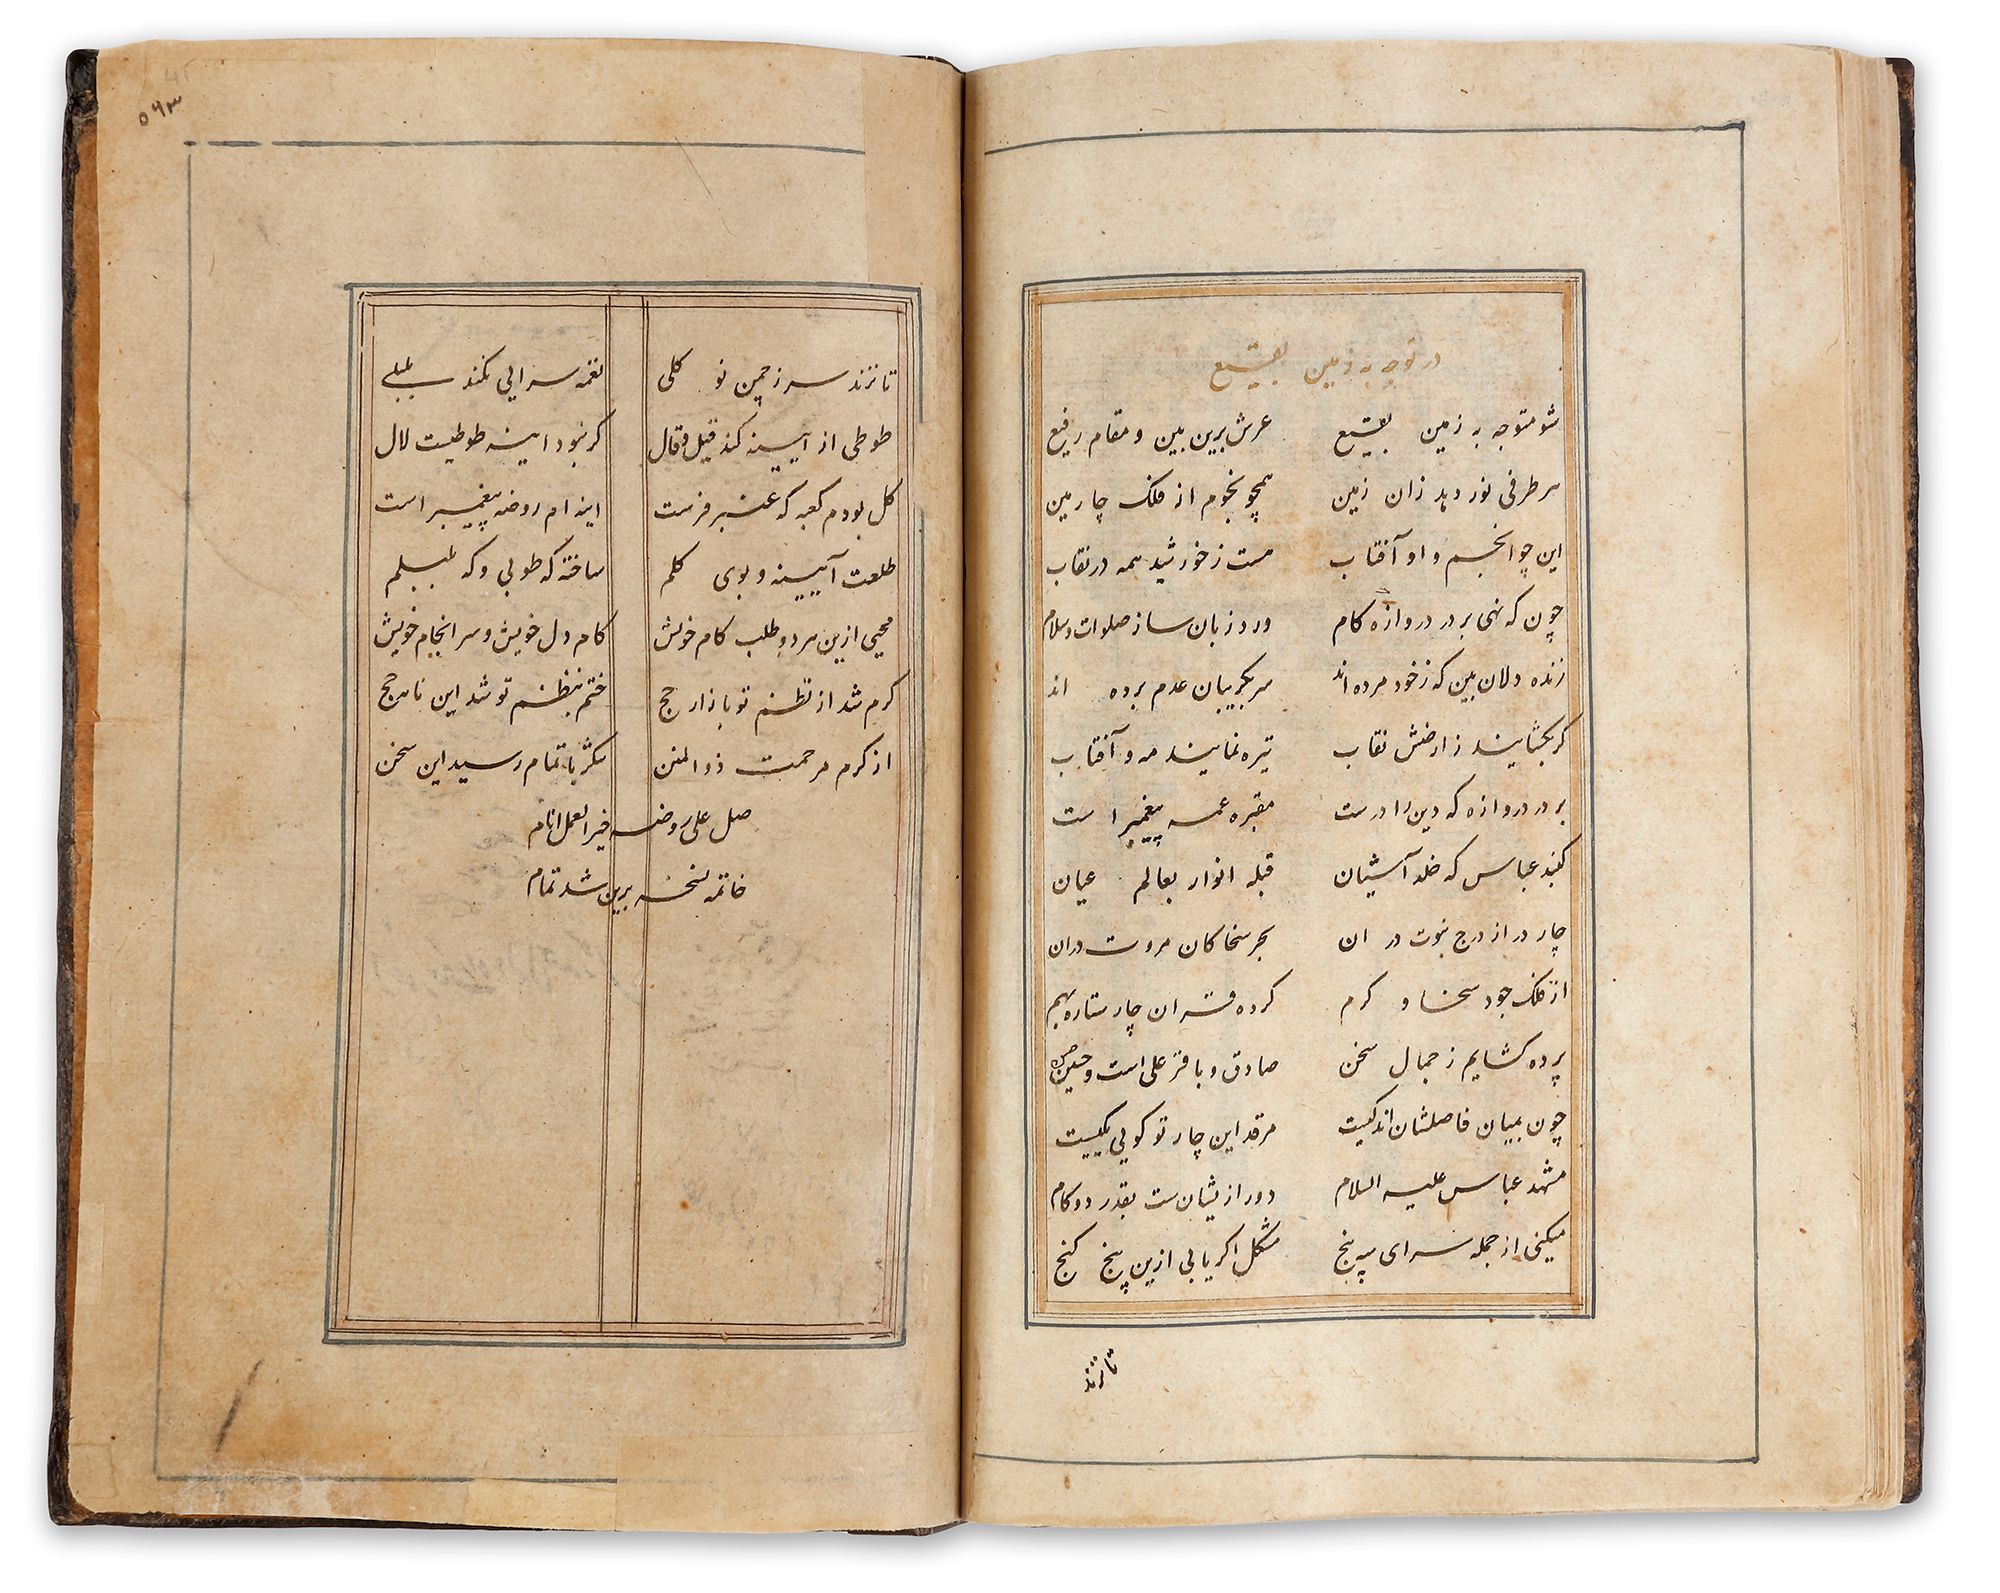 در توجه به زمین بقیع
شو متوجه به زمین بقیع عرش برین بین و مقام رفیع
هر طرفی نور دهد زان زمین همچو نجوم از فلک چارمین
این چو انجم و او آفتاب هست ز خورشید همه در نقاب
چون که نهی بر در دروازه کام ورد زبان ساز صلوات و سلام
زنده دلان بین که ز خود مرده اند سر بکریبان عدم برده اند
کر بکشایند ز ارضش نقاب تیره نمایند مه و آفتاب
بر در دروازه که دین را درست مقبره عمه پیغمبر است
کنبد عباس که خلد آشیان قبله انوار بعالم عیان
چار در از درج نبوت در ان بحر سخا کان مروت دران
از فلک جود سخا و کرم کرده قران چار ستاره بهم
پرده کشایم ز جمال سخن صادق و باقر علی است و حسن
چون بمیان فاصلشان اندکیست مرقد این چار تو کویی یکیست
مشهد عباس علیه السلام دور ازیشان ست بقدر دو کام
میکنی از جمله سرای سه پنج مشکل اکر یابی ازین پنج کنج
تا نزند
۵۶۳
تا نزند سر ز چمن نو کلی نغمه سرایی نکند بلبلی
طوطی از آیینه کند قیل و قال کر نبود اینه طوطیست لال
کل بودم کعبه که عنبر فرست اینه ام روضه پیغمبر است
طلعت آیینه و بوی کلم ساخته که طوطی و که بلبلم
محیی ازین هر دو طلب کام خویش کام دل خویش و سر انجام خویش
کرم شد از نظم تو بازار حج ختم بنظم تو شد این نامه حج
از کرم مرحمت ذو المنن شکر باتمام رسید این سخن
صل علی روضه خیر العمل انام
خاتمه نسخه برین شد تمام